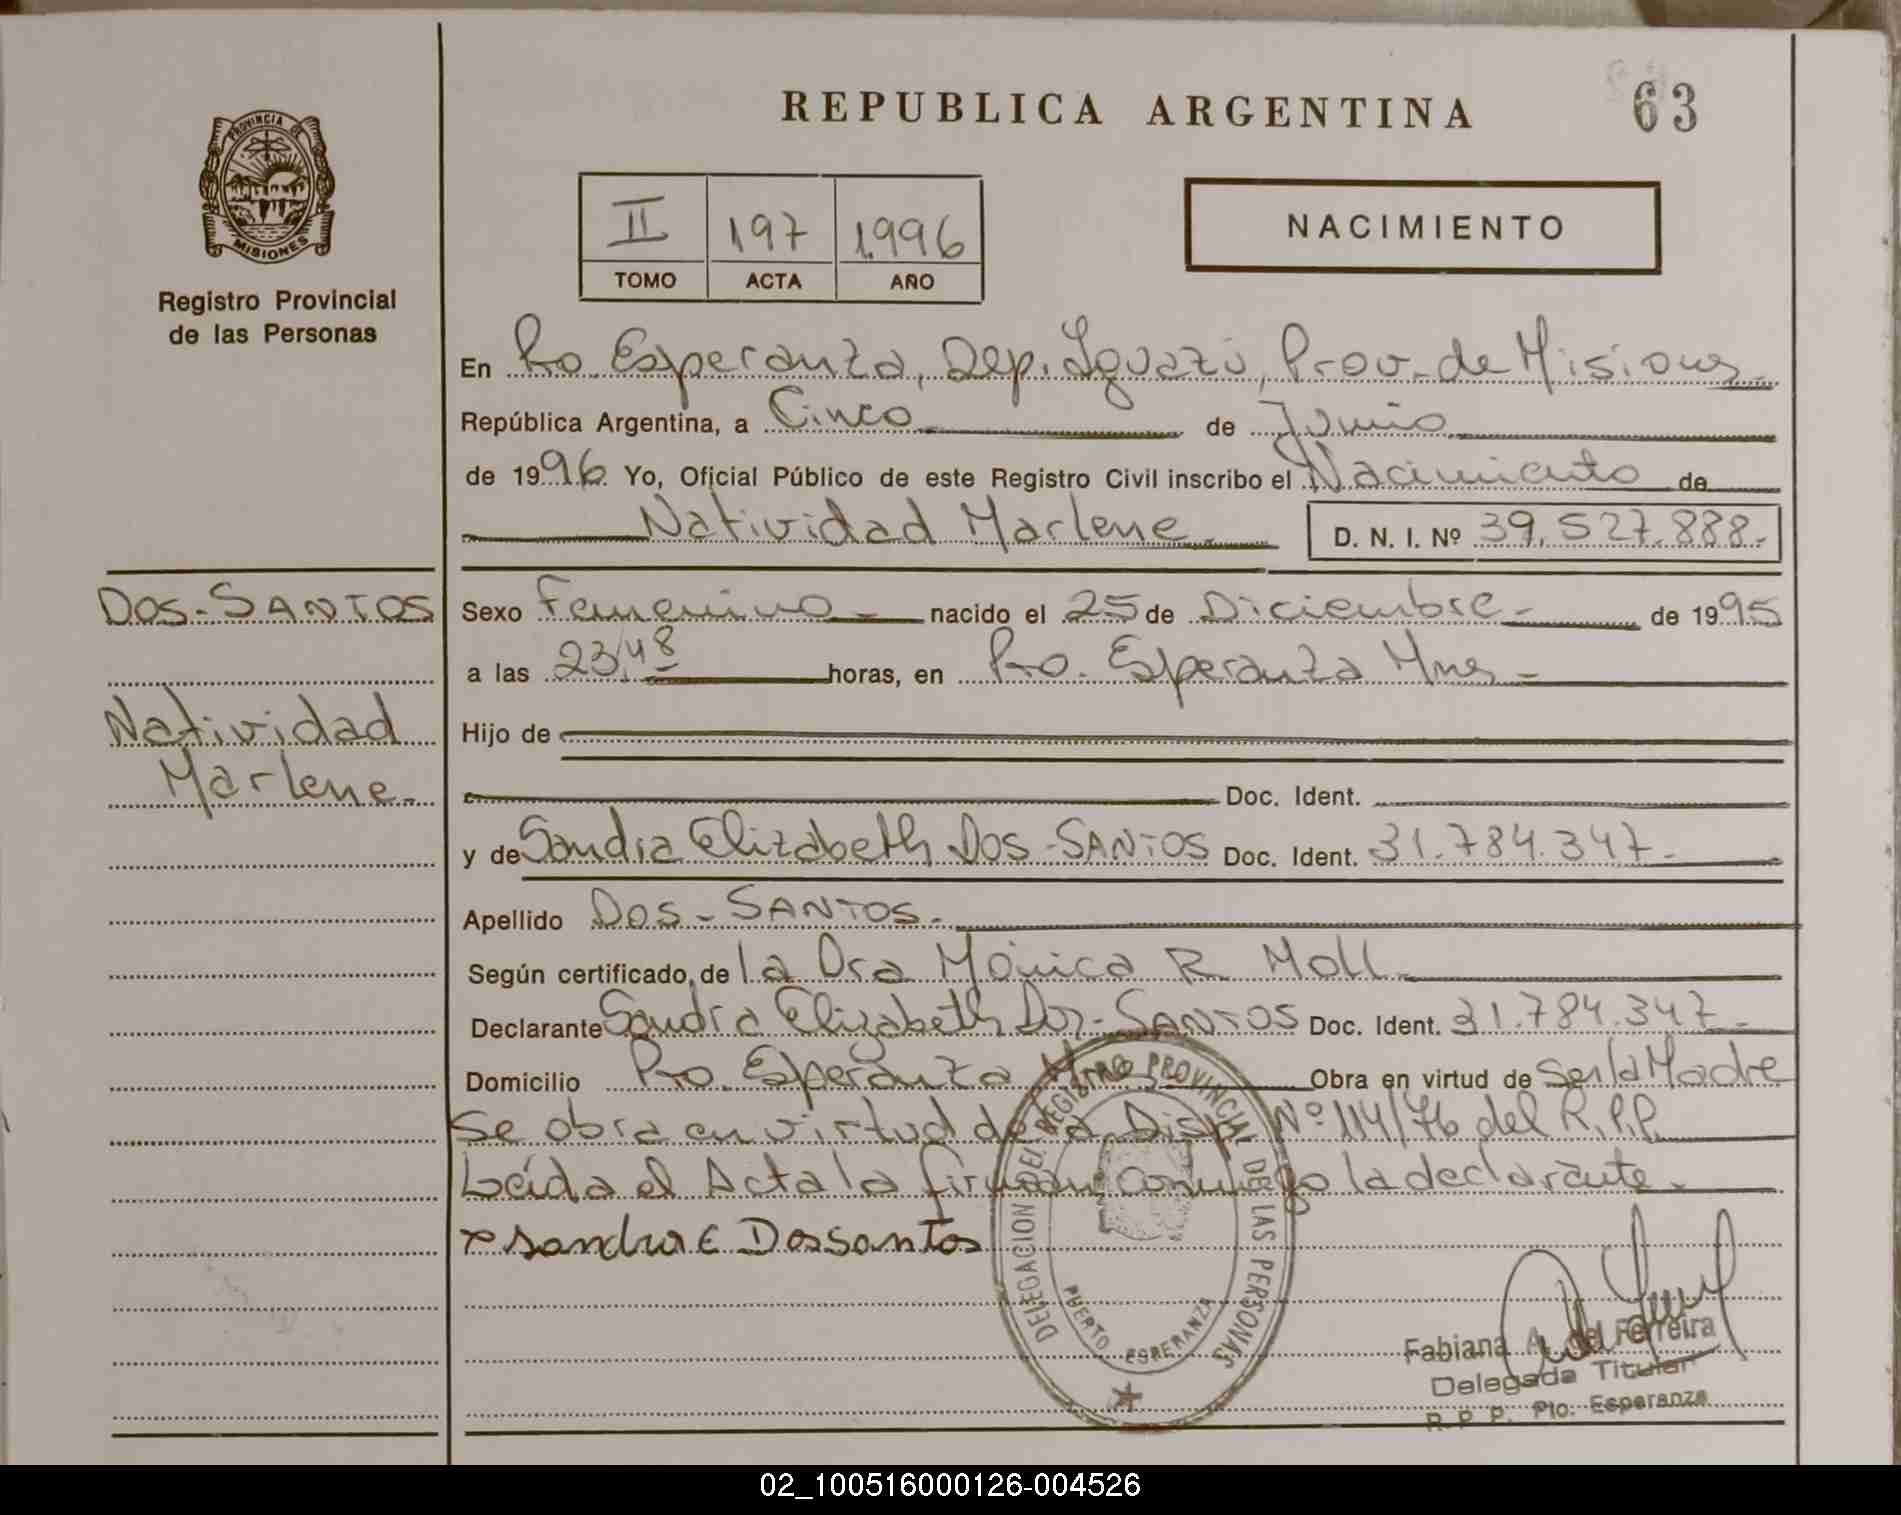 REPUBLICA ARGENTINA
63
PROVINCIA DE
MISIONES
Registro Provincial
de las Personas
II 197 1996
TOMO ACTA AÑO
NACIMIENTO
En Pto. Esperanza, Dep. Iguazú, Prov. de Misiones
República Argentina, a Cinco de Junio
de 1996. Yo, Oficial Público de este Registro Civil inscribo el Nacimiento de
Natividad Marlene. D. N. I. Nº 39.527.888.-
DOS-SANTOS
Natividad
Marlene.-
Sexo Femenino - nacido el 25 de Diciembre - de 1995
a las 23,48 horas, en Pto. Esperanza Mnes -
Hijo de
Doc. Ident.
y de Sandra Elizabeth DOS-SANTOS Doc. Ident. 31.784.347.-
Apellido DOS-SANTOS.
Según certificado, de la Dra Mónica R. Moll
Declarante Sandra Elizabeth Dos-SANTOS Doc. Ident. 31.784.347.-
Domicilio Pto. Esperanza Mnes Obra en virtud de Ser la Madre
Se obra en virtud de la Disp. Nº 114/76 del R.P.P.
Leída el Acta la firman conmigo la declarante.
x Sandra E Dossantos
DELEGACION DEL REGISTRO PROVINCIAL DE LAS PERSONAS
PUERTO ESPERANZA
Fabiana A. del Ferreira
Delegada Titular
R. P. P. Pto. Esperanza
02_100516000126-004526